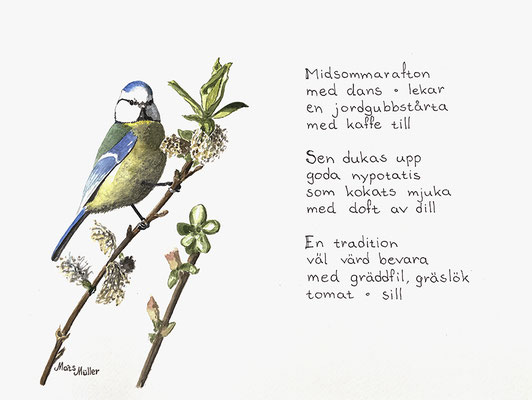 Midsommarafton
med dans ∘ lekar
en jordgubbstårta
med kaffe till
Sen dukas upp
goda nypotatis
som kokats mjuka
med doft av dill
En tradition
väl värd bevara
med gräddfil, gräslök
tomat ∘ sill
Mats Müller